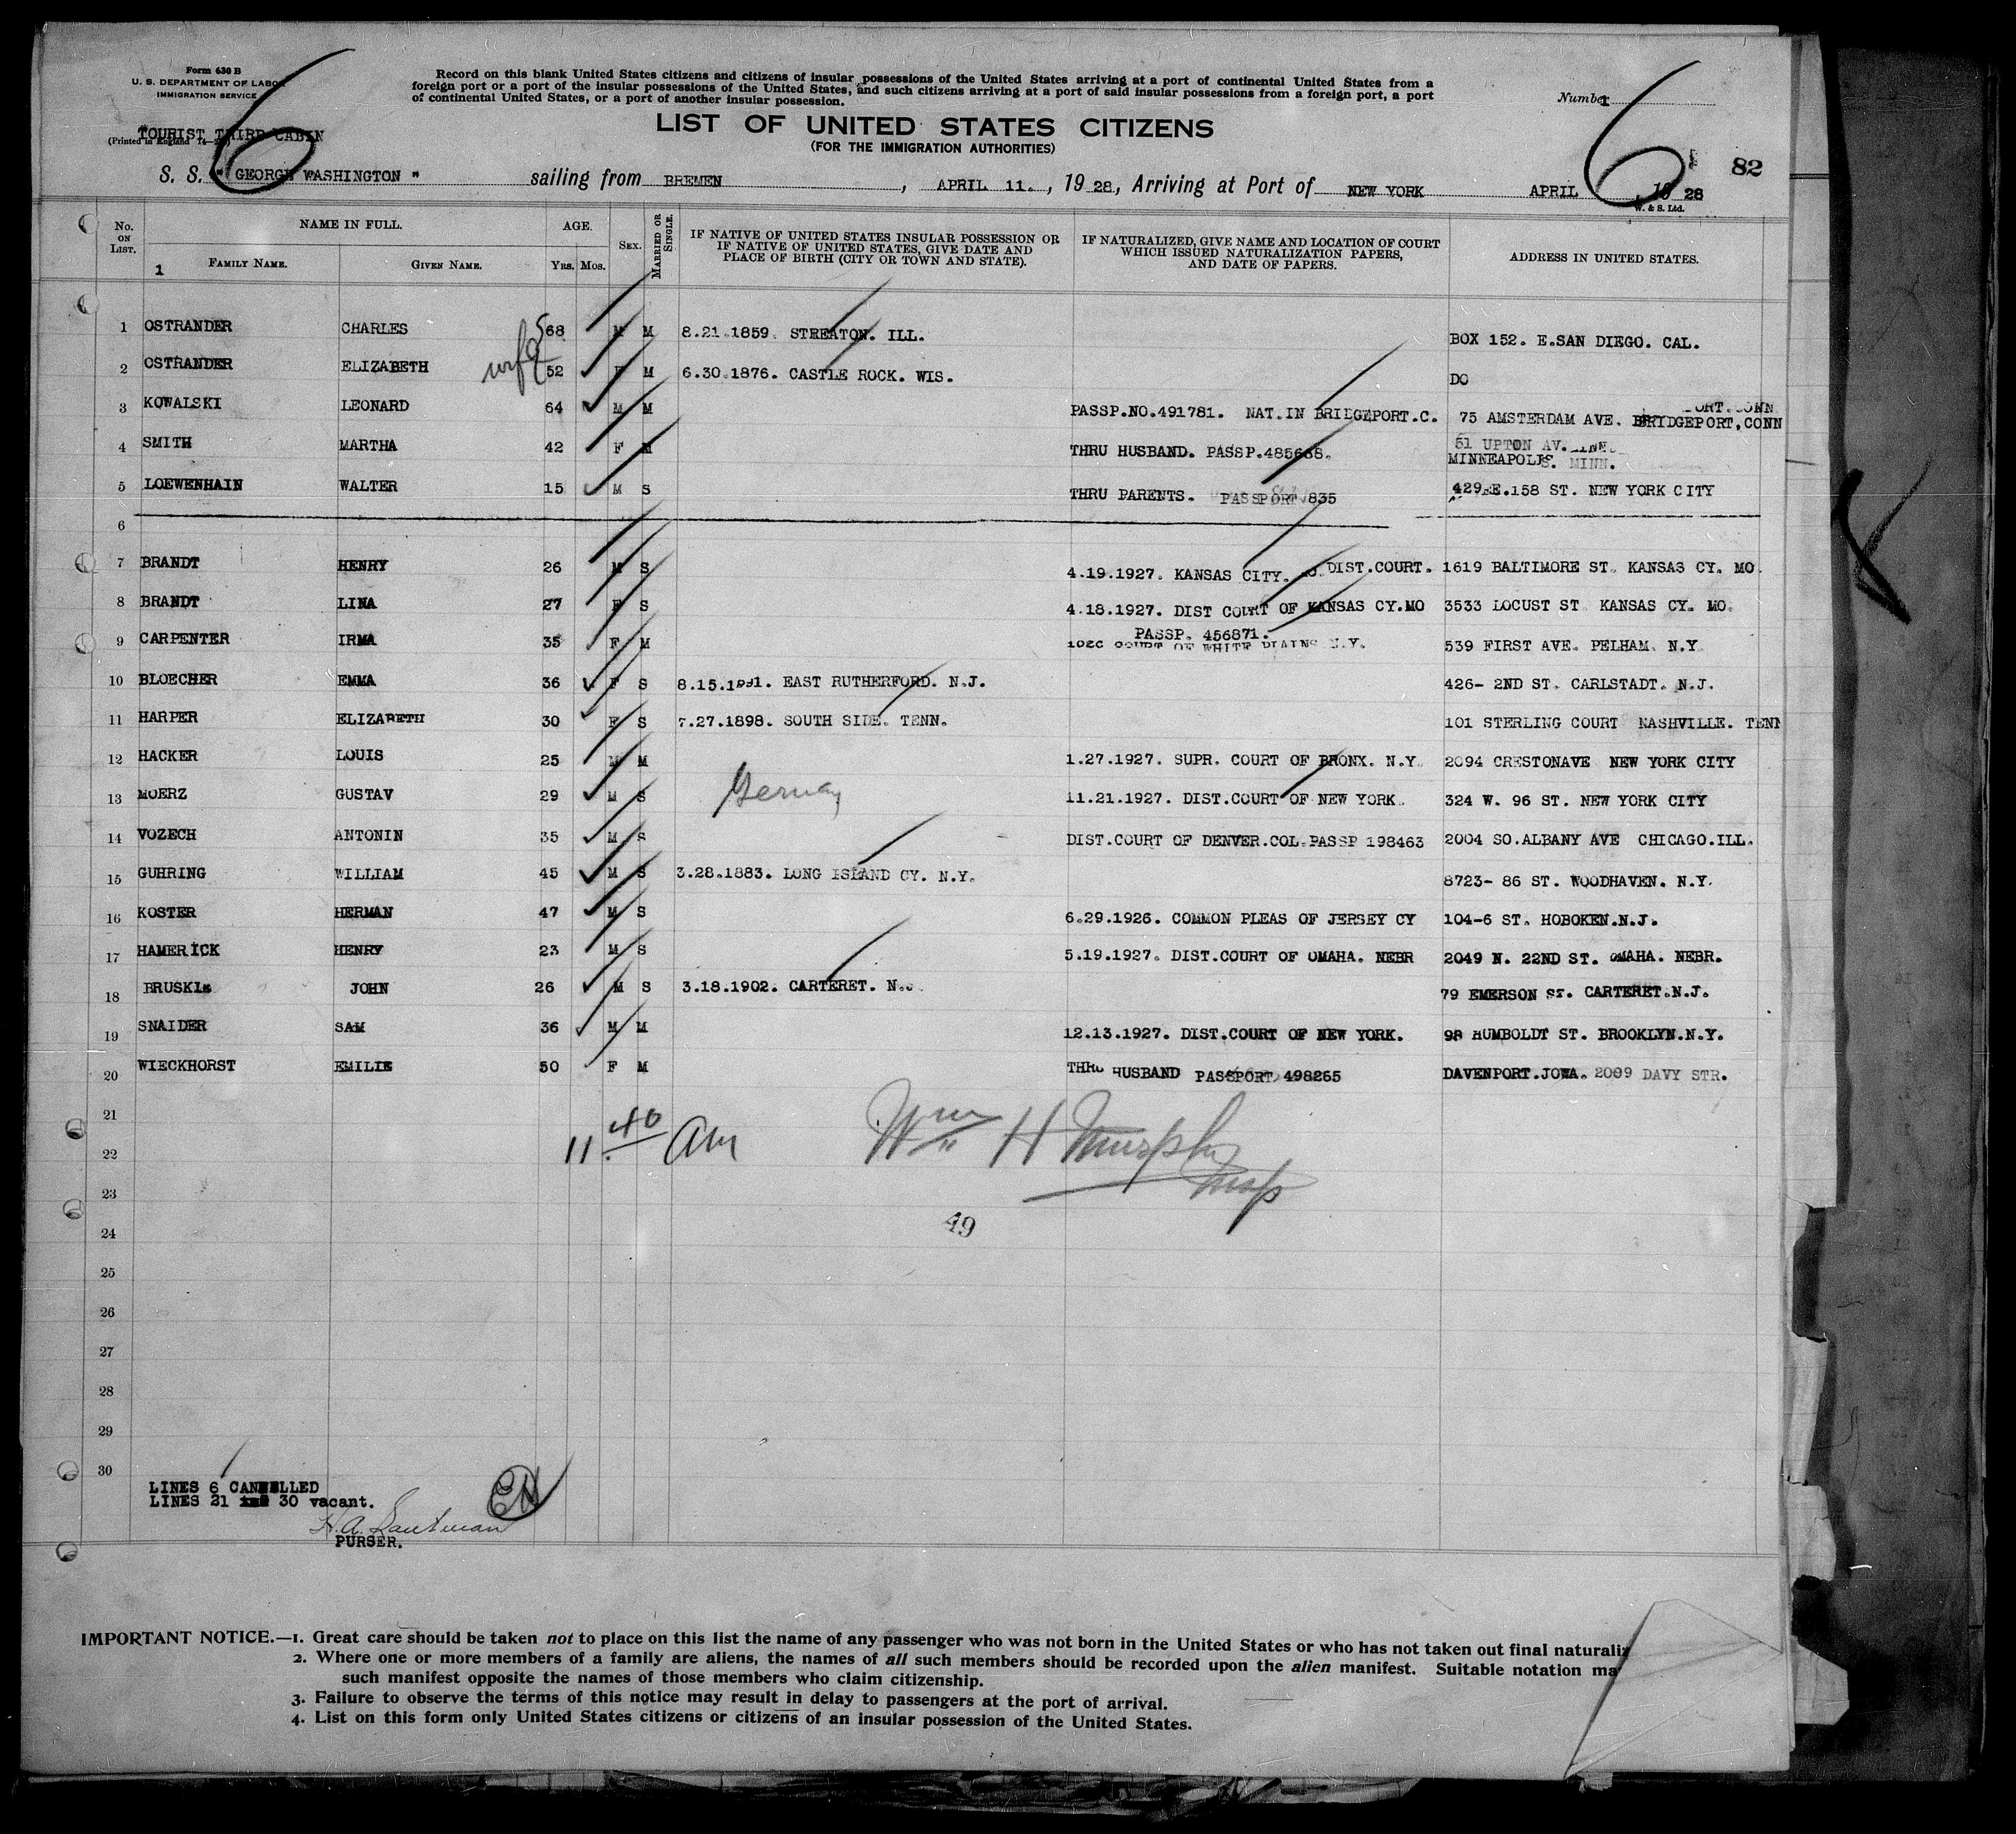 Form 630 B
U. S. DEPARTMENT OF LABOR
IMMIGRATION SERVICE
TOURIST THIRD CABIN
(Printed in England
Record on this blank United States citizens and citizens of insular possessions of the United States arriving at a port of continental United States from a
foreign port or a port of the insular possessions of the United States, and such citizens arriving at a port of said insular possessions from a foreign port, a port
of continental United States, or a port of another insular possession.
Number 1
6 6
LIST OF UNITED STATES CITIZENS
(FOR THE IMMIGRATION AUTHORITIES)
82
S. S. " GEORGE WASHINGTON " sailing from BREMEN, APRIL 11., 1928, Arriving at Port of NEW YORK APRIL 1928
W. & S. Ltd.
No. ON LIST. NAME IN FULL. AGE. SEX. MARRIED OR SINGLE. IF NATIVE OF UNITED STATES INSULAR POSSESSION OR IF NATIVE OF UNITED STATES, GIVE DATE AND PLACE OF BIRTH (CITY OR TOWN AND STATE). IF NATURALIZED, GIVE NAME AND LOCATION OF COURT WHICH ISSUED NATURALIZATION PAPERS, AND DATE OF PAPERS. ADDRESS IN UNITED STATES.
1 FAMILY NAME. GIVEN NAME. YRS. MOS.
1 OSTRANDER CHARLES 68 M M 8.21.1859. STREATON. ILL. BOX 152. E.SAN DIEGO. CAL.
2 OSTRANDER ELIZABETH wife 52 F M 6.30.1876. CASTLE ROCK. WIS. DO
3 KOWALSKI LEONARD 64 M M PASSP.NO.491781. NAT.IN BRIDGEPORT.C. 75 AMSTERDAM AVE. BRIDGEPORT,CONN
4 SMITH MARTHA 42 F M THRU HUSBAND. PASSP.485668. 51 UPTON AV.
MINNEAPOLIS. MINN.
5 LOEWENHAIN WALTER 15 M S THRU PARENTS. PASSPORT 835 429 E.158 ST. NEW YORK CITY
6
7 BRANDT HENRY 26 M S 4.19.1927. KANSAS CITY. DIST.COURT. 1619 BALTIMORE ST. KANSAS CY. MO.
8 BRANDT LINA 27 F S 4.18.1927. DIST COURT OF KANSAS CY.MO 3533 LOCUST ST. KANSAS CY. MO.
9 CARPENTER IRMA 35 F M PASSP. 456871.
COURT OF WHITE PLAINS N.Y. 539 FIRST AVE. PELHAM. N.Y.
10 BLOECHER EMMA 36 F S 8.15.1891. EAST RUTHERFORD. N.J. 426- 2ND ST. CARLSTADT. N.J.
11 HARPER ELIZABETH 30 F S 7.27.1898. SOUTH SIDE. TENN. 101 STERLING COURT NASHVILLE. TENN
12 HACKER LOUIS 25 M M 1.27.1927. SUPR. COURT OF BRONX. N.Y. 2094 CRESTONAVE NEW YORK CITY
13 MOERZ GUSTAV 29 M S Germany 11.21.1927. DIST.COURT OF NEW YORK. 324 W. 96 ST. NEW YORK CITY
14 VOZECH ANTONIN 35 M S DIST.COURT OF DENVER.COL.PASSP 198463 2004 SO.ALBANY AVE CHICAGO.ILL.
15 GUHRING WILLIAM 45 M S 3.28.1883. LONG ISLAND CY. N.Y. 8723- 86 ST. WOODHAVEN. N.Y.
16 KOSTER HERMAN 47 M S 6.29.1926. COMMON PLEAS OF JERSEY CY 104-6 ST. HOBOKEN.N.J.
17 HAMERICK HENRY 23 M S 5.19.1927. DIST.COURT OF OMAHA. NEBR 2049 N. 22ND ST. OMAHA. NEBR.
18 JOHN 26 M S 3.18.1902. CARTERET. N.J. 79 EMERSON ST. CARTERET.N.J.
19 SNAIDER SAM 36 M M 12.13.1927. DIST.COURT OF NEW YORK. 98 HUMBOLDT ST. BROOKLYN.N.Y.
20 WIECKHORST EMILIE 50 F M THRU HUSBAND PASSPORT 498265 DAVENPORT.JOWA. 2009 DAVY STR.
21
22 11 40 am Wm H Murphy
23 Insp
24 49
25
26
27
28
29
30
LINES 6 CANCELLED
LINES 21 30 vacant.
PURSER.
IMPORTANT NOTICE.—1. Great care should be taken not to place on this list the name of any passenger who was not born in the United States or who has not taken out final naturaliz
2. Where one or more members of a family are aliens, the names of all such members should be recorded upon the alien manifest. Suitable notation ma
such manifest opposite the names of those members who claim citizenship.
3. Failure to observe the terms of this notice may result in delay to passengers at the port of arrival.
4. List on this form only United States citizens or citizens of an insular possession of the United States.